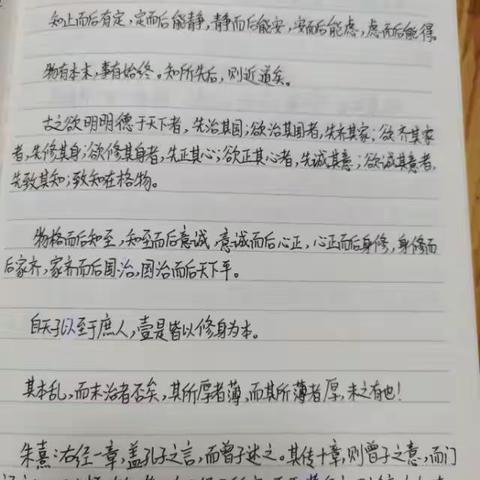 知止而后有定,定而后能静,静而后能安,安而后能虑,虑而后能得。
物有本末,事有始终。知所先后,则近道矣。
古之欲明明德于天下者,先治其国;欲治其国者,先齐其家;欲齐其家
者,先修其身;欲修其身者,先正其心;欲正其心者,先诚其意;欲诚其意者,
先致其知;致知在格物。
物格而后知至,知至而后意诚,意诚而后心正,心正而后身修,身修而
后家齐,家齐而后国治,国治而后天下平。
自天子以至于庶人,壹是皆以修身为本。
其本乱,而末治者否矣,其所厚者薄,而其所薄者厚,未之有也!
朱熹:右经一章,盖孔子之言,而曾子述之。其传十章,则曾子之意,而门